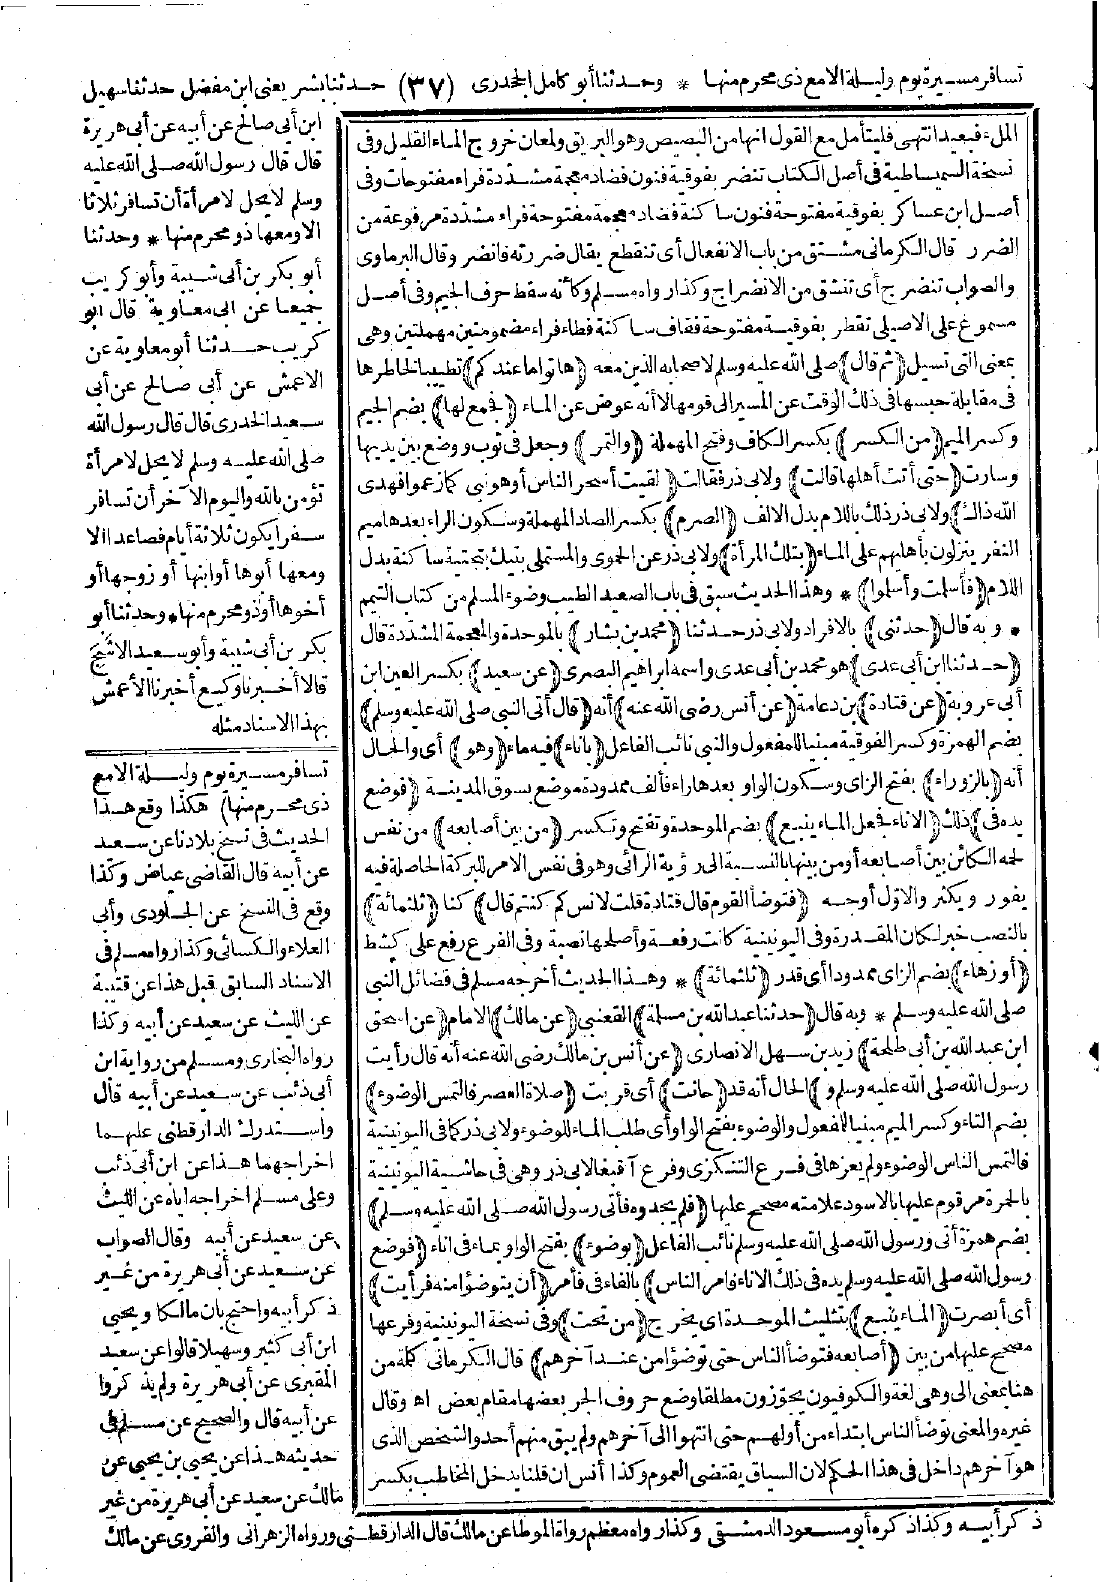 تسافر مسيرة يوم وليلة الا مع ذي محرم منها * وحدثنا أبو كامل الجحدري (٣٧) حدثنا بشر يعني ابن مفضل حدثنا سهيل
ابن أبي صالح عن أبيه عن أبي هريرة
قال قال رسول الله صلى الله عليه
وسلم لا يحل لامرأة أن تسافر ثلاثا
الا ومعها ذو محرم منها * وحدثنا
أبو بكر بن أبي شيبة وأبو كريب
جميعا عن ابي معاوية قال ابو
كريب حدثنا أبو معاوية عن
الاعمش عن أبي صالح عن أبي
سعيد الخدري قال قال رسول الله
صلى الله عليه وسلم لا يحل لامرأة
تؤمن بالله واليوم الآخر أن تسافر
سفرا يكون ثلاثة أيام فصاعدا الا
ومعها أبوها أو ابنها أو زوجها أو
أخوها أو ذو محرم منها * وحدثنا أبو
بكر بن أبي شيبة وأبو سعيد الاشج
قالا أخبرنا وكيع أخبرنا الأعمش
بهذا الاسناد مثله
تسافر مسيرة يوم وليلة الا مع
ذي محرم منها) هكذا وقع هذا
الحديث في نسخ بلادنا عن سعيد
عن أبيه قال القاضي عياض وكذا
وقع في النسخ عن الجلودي وأبي
العلاء والكسائي وكذا رواه مسلم في
الاسناد السابق قبل هذا عن قتيبة
عن الليث عن سعيد عن أبيه وكذا
رواه البخاري ومسلم من رواية ابن
أبي ذئب عن سعيد عن أبيه قال
واستدرك الدارقطني عليهما
اخراجهما هذا عن ابن أبي ذئب
وعلى مسلم اخراجه اياه عن الليث
عن سعيد عن أبيه وقال الصواب
عن سعيد عن أبي هريرة من غير
ذكر أبيه واحتج بان مالكا ويحيى
ابن أبي كثير وسهيلا قالوا عن سعيد
المقبري عن أبي هريرة ولم يذكروا
عن أبيه قال والصحيح عن مسلم في
حديثه هذا عن يحيى بن يحيى عن
مالك عن سعيد عن أبي هريرة من غير
الملء فبعيد انتهى فليتأمل مع القول انها من البصيص وهو البريق ولمعان خروج الماء القليل وفي
نسخة السميساطية في أصل الكتاب تنضر بفوقية فنون فضاد معجمة مشددة فراء مفتوحات وفي
أصل ابن عساكر بفوقية مفتوحة فنون ساكنة فضاد معجمة مفتوحة فراء مشددة مرفوعة من
الضرر قال الكرماني مشتق من باب الانفعال أي تنقطع يقال ضررته فانضر وقال البرماوي
والصواب تنضرج أي تنشق من الانضراج وكذا رواه مسلم وكأنه سقط حرف الجيم وفي أصل
مسموع على الاصيلي تقطر بفوقية مفتوحة فقاف ساكنة فطاء فراء مضمومتين مهملتين وهي
بمعنى التي تسيل ((ثم قال)) صلى الله عليه وسلم لاصحابه الذين معه ((هاتوا ما عندكم)) تطييبا لخاطرها
في مقابلة حبسها في ذلك الوقت عن المسير الى قومها لا أنه عوض عن الماء ((فجمع لها)) بضم الجيم
وكسر الميم ((من الكسر)) بكسر الكاف وفتح المهملة ((والتمر)) وجعل في ثوب ووضع بين يديها
وسارت ((حتى أتت أهلها قالت)) ولابي ذر فقالت ((لقيت أسحر الناس أو هو نبي كما زعموا فهدى
الله ذاك)) ولابي ذر ذلك باللام بدل الالف ((الصرم)) بكسر الصاد المهملة وسكون الراء بعدها ميم
النفر ينزلون بأهليهم على الماء ((بتلك المرأة)) ولابي ذر عن الحموي والمستملي بتيك بتحتية ساكنة بدل
اللام ((فأسلمت وأسلموا)) * وهذا الحديث سبق في باب الصعيد الطيب وضوء المسلم من كتاب التيمم
* وبه قال ((حدثني)) بالافراد ولابي ذر حدثنا ((محمد بن بشار)) بالموحدة والمعجمة المشددة قال
((حدثنا ابن أبي عدي)) هو محمد بن أبي عدي واسمه ابراهيم البصري ((عن سعيد)) بكسر العين ابن
أبي عروبة ((عن قتادة)) بن دعامة ((عن أنس رضي الله عنه)) أنه ((قال أتي النبي صلى الله عليه وسلم))
بضم الهمزة وكسر الفوقية مبنيا للمفعول والنبي نائب الفاعل ((باناء)) فيه ماء ((وهو)) أي والحال
أنه ((بالزوراء)) بفتح الزاي وسكون الواو بعدها راء فألف ممدودة موضع بسوق المدينة ((فوضع
يده في)) ذلك ((الاناء فجعل الماء ينبع)) بضم الموحدة وتفتح وتكسر ((من بين أصابعه)) من نفس
لحمه الكائن بين أصابعه أو من بينها بالنسبة الى رؤية الرائي وهو في نفس الامر للبركة الحاصلة فيه
يفور ويكثر والاول أوجه ((فتوضأ القوم قال قتادة قلت لانس كم كنتم قال)) كنا ((ثلثمائة))
بالنصب خبر لكان المقدرة وفي اليونينية كانت رفعة وأصلحها نصبة وفي الفرع رفع على كشط
((أو زهاء)) بضم الزاي ممدودا أي قدر ((ثلثمائة)) * وهذا الحديث أخرجه مسلم في فضائل النبي
صلى الله عليه وسلم * وبه قال ((حدثنا عبد الله بن مسلمة)) القعنبي ((عن مالك)) الامام ((عن اسحق
ابن عبد الله بن أبي طلحة)) زيد بن سهل الانصاري ((عن أنس بن مالك رضي الله عنه أنه قال رأيت
رسول الله صلى الله عليه وسلم و)) الحال أنه قد ((حانت)) أي قربت ((صلاة العصر فالتمس الوضوء))
بضم التاء وكسر الميم مبنيا للمفعول والوضوء بفتح الواو أي طلب الماء للوضوء ولابي ذر كما في اليونينية
فالتمس الناس الوضوء ولم يعزها في فرع التنكزي وفرع آقبغا لابي ذر وهي في حاشية اليونينية
بالحمرة مرقوم عليها بالاسود علامته مصحح عليها ((فلم يجدوه فأتي رسول الله صلى الله عليه وسلم))
بضم همزة أتي ورسول الله صلى الله عليه وسلم نائب الفاعل ((بوضوء)) بفتح الواو بماء في اناء ((فوضع
رسول الله صلى الله عليه وسلم يده في ذلك الاناء فامر الناس)) بالفاء في فأمر ((أن يتوضؤا منه فرأيت))
أي أبصرت ((الماء ينبع)) بتثليث الموحدة اي يخرج ((من تحت)) وفي نسخة اليونينية وفرعها
مصحح عليها من بين ((أصابعه فتوضأ الناس حتى توضؤا من عند آخرهم)) قال الكرماني كلمة من
هنا بمعنى الى وهي لغة والكوفيون يجوزون مطلقا وضع حروف الجر بعضها مقام بعض اه وقال
غيره والمعنى توضأ الناس ابتداء من أولهم حتى انتهوا الى آخرهم ولم يبق منهم أحد والشخص الذي
هو آخرهم داخل في هذا الحكم لان السياق يقتضي العموم وكذا أنس ان قلنا يدخل المخاطب بكسر
ذكر أبيه وكذا ذكره أبو مسعود الدمشقي وكذا رواه معظم رواة الموطا عن مالك قال الدارقطني ورواه الزهراني والفروي عن مالك